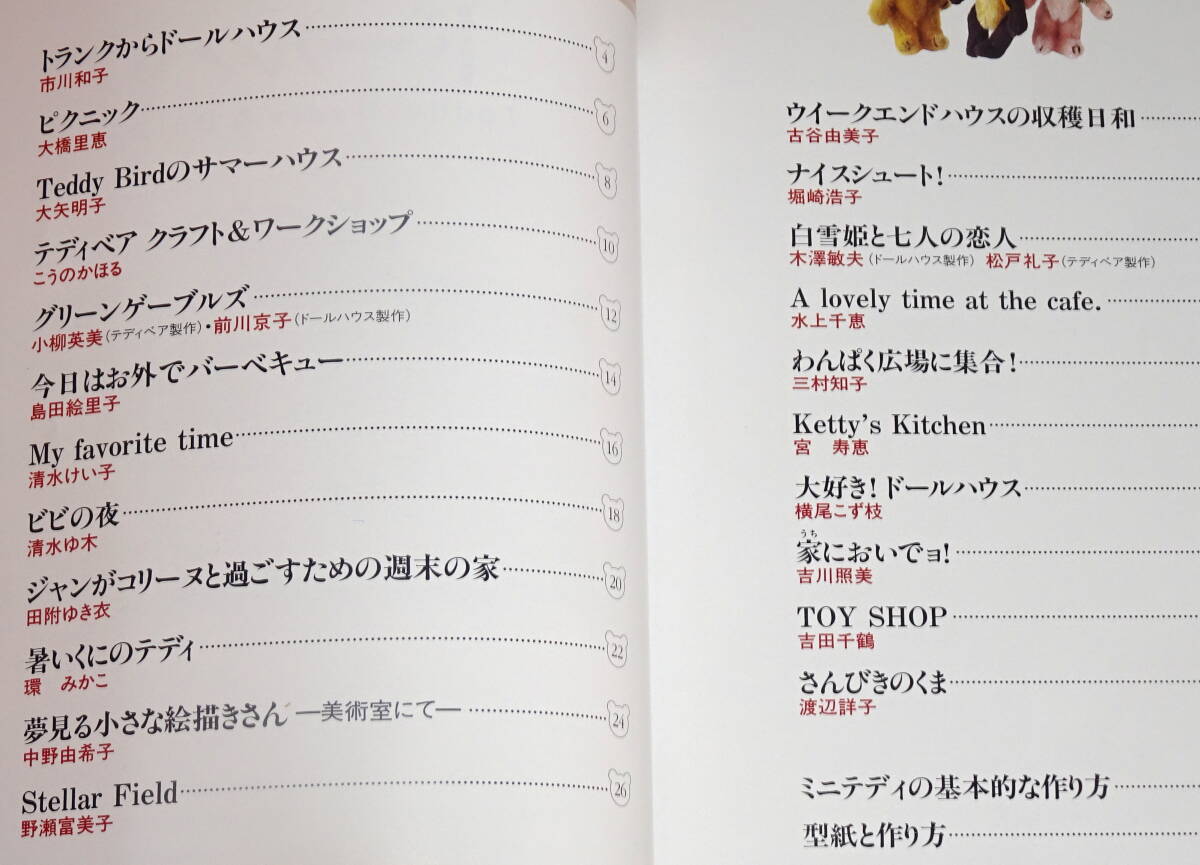 トランクからドールハウス 4
市川和子
ピクニック 6
大橋里恵
Teddy Birdのサマーハウス 8
大矢明子
テディベア クラフト&ワークショップ 10
こうのかほる
グリーンゲーブルズ 12
小柳英美(テディベア製作)・前川京子(ドールハウス製作)
今日はお外でバーベキュー 14
島田絵里子
My favorite time 16
清水けい子
ビビの夜 18
清水ゆ木
ジャンがコリーヌと過ごすための週末の家 20
田附ゆき衣
暑いくにのテディ 22
環 みかこ
夢見る小さな絵描きさん ―美術室にて― 24
中野由希子
Stellar Field 26
野瀬富美子
ウイークエンドハウスの収穫日和
古谷由美子
ナイスシュート!
堀崎浩子
白雪姫と七人の恋人
木澤敏夫(ドールハウス製作) 松戸礼子(テディベア製作)
A lovely time at the cafe.
水上千恵
わんぱく広場に集合!
三村知子
Ketty's Kitchen
宮 寿恵
大好き!ドールハウス
横尾こず枝
うち
家においでョ!
吉川照美
TOY SHOP
吉田千鶴
さんびきのくま
渡辺詳子
ミニテディの基本的な作り方
型紙と作り方